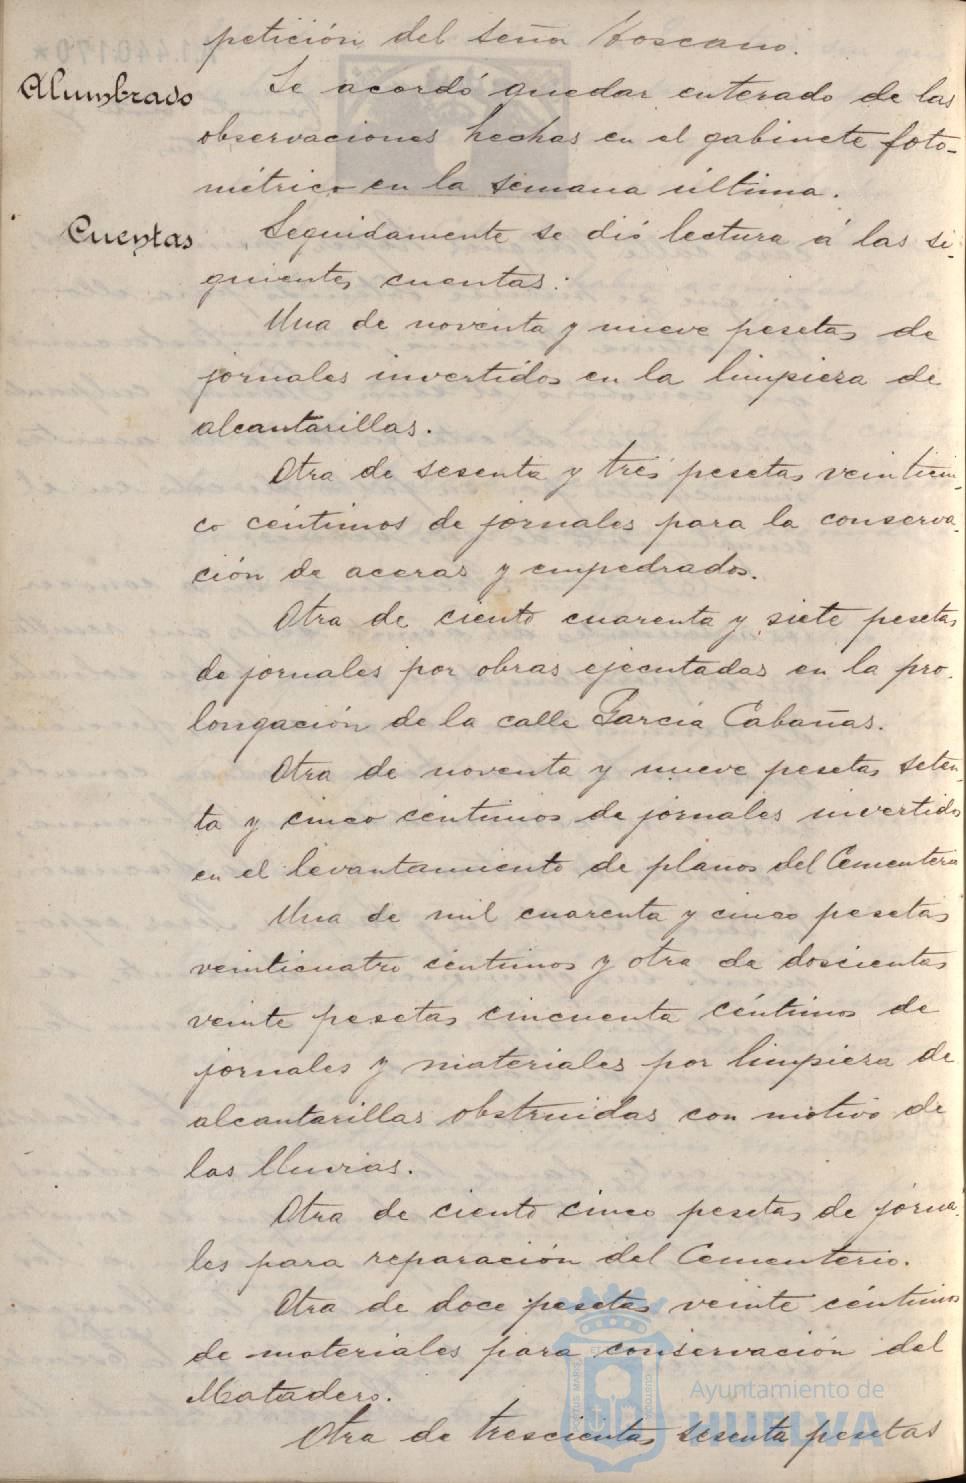 petición del señor Toscano.
Alumbrado Se acordó quedar enterado de las
observaciones hechas en el gabinete foto-
métrico en la semana última.
Cuentas Seguidamente se dió lectura á las si-
guientes cuentas:
Una de noventa y nueve pesetas de
jornales invertidos en la limpieza de
alcantarillas.
Otra de sesenta y tres pesetas veinticin-
co céntimos de jornales para la conserva-
ción de aceras y empedrados.
Otra de ciento cuarenta y siete pesetas
de jornales por obras ejecutadas en la pro-
longación de la calle García Cabañas.
Otra de noventa y nueve pesetas seten-
ta y cinco céntimos de jornales invertidos
en el levantamiento de planos del Cementerio
Una de mil cuarenta y cinco pesetas
veinticuatro céntimos y otra de doscientas
veinte pesetas cincuenta céntimos de
jornales y materiales por limpieza de
alcantarillas obstruidas con motivo de
las lluvias.
Otra de ciento cinco pesetas de jorna-
les para reparación del Cementerio.
Otra de doce pesetas veinte céntimos
de materiales para conservación del
Matadero.
Otra de trescientas sesenta pesetas
Ayuntamiento de
HUELVA